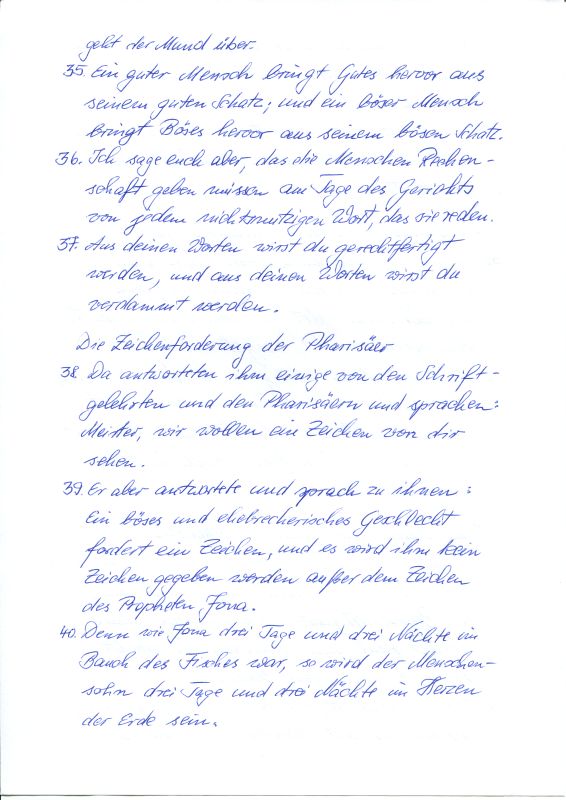 geht der Mund über.
35. Ein guter Mensch bringt Gutes hervor aus
seinem guten Schatz; und ein böser Mensch
bringt Böses hervor aus seinem bösen Schatz.
36. Ich sage euch aber, das die Menschen Rechen-
schaft geben müssen am Tage des Gerichts
von jedem nichtsnutzigen Wort, das sie reden.
37. Aus deinen Worten wirst du gerechtfertigt
werden, und aus deinen Worten wirst du
verdammt werden.
Die Zeichenforderung der Pharisäer
38. Da antworteten ihm einige von den Schrift-
gelehrten und den Pharisäern und sprachen:
Meister, wir wollen ein Zeichen von dir
sehen.
39. Er aber antwortete und sprach zu ihnen:
Ein böses und ehebrecherisches Geschlecht
fordert ein Zeichen, und es wird ihm kein
Zeichen gegeben werden außer dem Zeichen
des Propheten Jona.
40. Denn wie Jona drei Tage und drei Nächte im
Bauch des Fisches war, so wird der Menschen-
sohn drei Tage und drei Nächte im Herzen
der Erde sein.